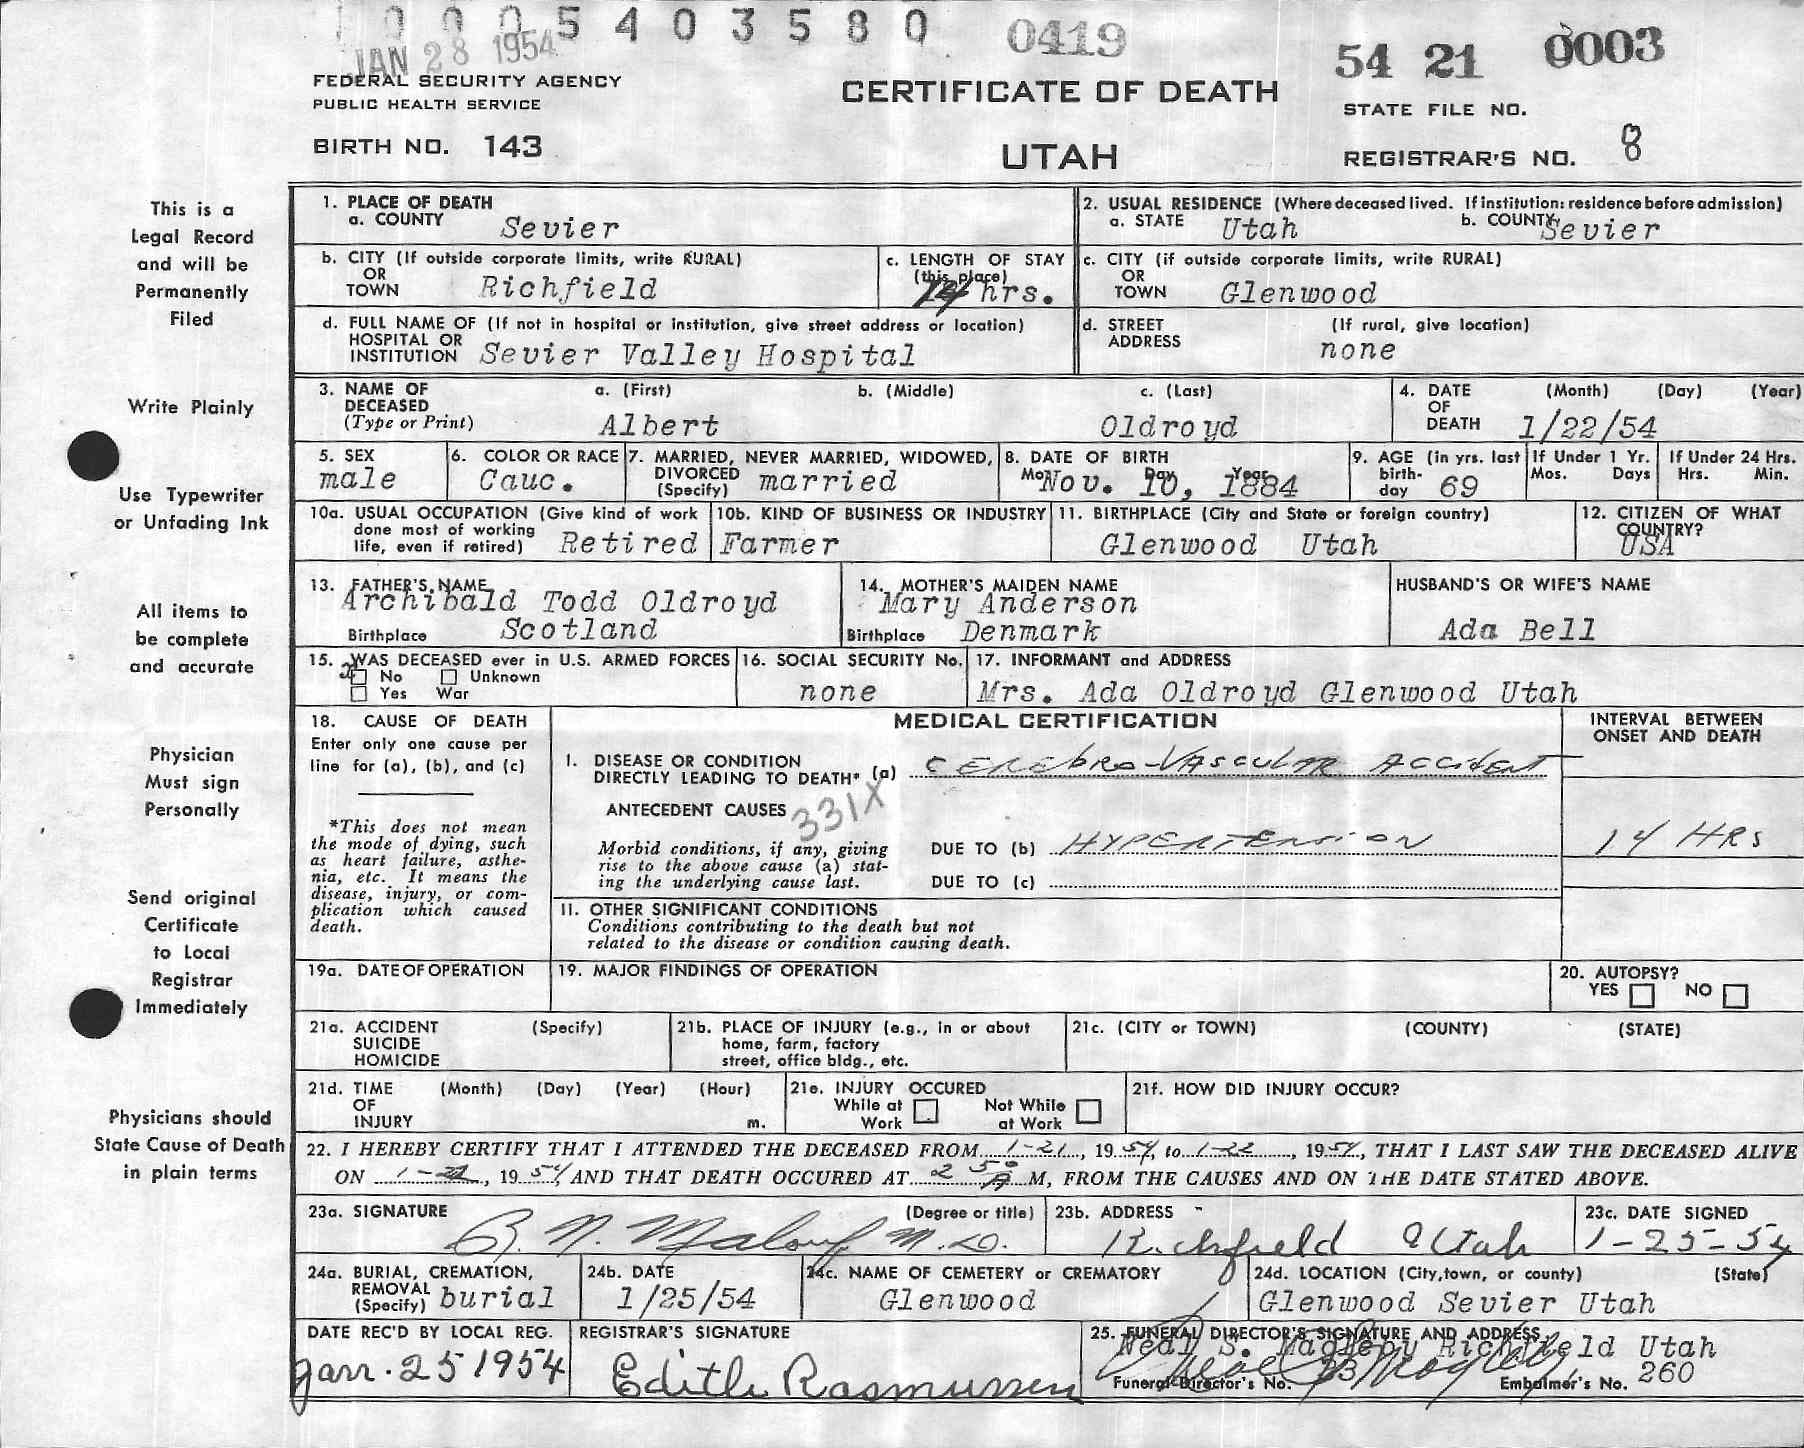 1 0 0 0 5 4 0 3 5 8 0 0419 54 21 0003
JAN 28 1954
FEDERAL SECURITY AGENCY
PUBLIC HEALTH SERVICE
BIRTH NO. 143
CERTIFICATE OF DEATH
UTAH
STATE FILE NO.
REGISTRAR'S NO. 8
This is a
Legal Record
and will be
Permanently
Filed
Write Plainly
Use Typewriter
or Unfading Ink
All items to
be complete
and accurate
Physician
Must sign
Personally
Send original
Certificate
to Local
Registrar
Immediately
Physicians should
State Cause of Death
in plain terms
1. PLACE OF DEATH
a. COUNTY Sevier
2. USUAL RESIDENCE (Where deceased lived. If institution: residence before admission)
a. STATE Utah b. COUNTY Sevier
b. CITY (If outside corporate limits, write RURAL)
OR
TOWN Richfield
c. LENGTH OF STAY
(this place)
14 hrs.
c. CITY (if outside corporate limits, write RURAL)
OR
TOWN Glenwood
d. FULL NAME OF (If not in hospital or institution, give street address or location)
HOSPITAL OR
INSTITUTION Sevier Valley Hospital
d. STREET (If rural, give location)
ADDRESS none
3. NAME OF a. (First) b. (Middle) c. (Last)
DECEASED
(Type or Print) Albert Oldroyd
4. DATE (Month) (Day) (Year)
OF
DEATH 1/22/54
5. SEX
male
6. COLOR OR RACE
Cauc.
7. MARRIED, NEVER MARRIED, WIDOWED,
DIVORCED
(Specify) married
8. DATE OF BIRTH
Mo. Day Year
Nov. 10, 1884
9. AGE (in yrs. last
birth-
day 69
If Under 1 Yr.
Mos. Days
If Under 24 Hrs.
Hrs. Min.
10a. USUAL OCCUPATION (Give kind of work
done most of working
life, even if retired) Retired
10b. KIND OF BUSINESS OR INDUSTRY
Farmer
11. BIRTHPLACE (City and State or foreign country)
Glenwood Utah
12. CITIZEN OF WHAT
COUNTRY?
USA
13. FATHER'S NAME
Archibald Todd Oldroyd
Birthplace Scotland
14. MOTHER'S MAIDEN NAME
Mary Anderson
Birthplace Denmark
HUSBAND'S OR WIFE'S NAME
Ada Bell
15. WAS DECEASED ever in U.S. ARMED FORCES
x No Unknown
Yes War
16. SOCIAL SECURITY No.
none
17. INFORMANT and ADDRESS
Mrs. Ada Oldroyd Glenwood Utah
18. CAUSE OF DEATH
Enter only one cause per
line for (a), (b), and (c)
*This does not mean
the mode of dying, such
as heart failure, asthe-
nia, etc. It means the
disease, injury, or com-
plication which caused
death.
MEDICAL CERTIFICATION
INTERVAL BETWEEN
ONSET AND DEATH
I. DISEASE OR CONDITION
DIRECTLY LEADING TO DEATH* (a) CEREbRO-VASCULAR ACCidENT
ANTECEDENT CAUSES 331X
Morbid conditions, if any, giving
rise to the above cause (a) stat-
ing the underlying cause last.
DUE TO (b) HYPERTENSiON 14 HRS
DUE TO (c)
II. OTHER SIGNIFICANT CONDITIONS
Conditions contributing to the death but not
related to the disease or condition causing death.
19a. DATE OF OPERATION
19. MAJOR FINDINGS OF OPERATION
20. AUTOPSY?
YES NO
21a. ACCIDENT (Specify)
SUICIDE
HOMICIDE
21b. PLACE OF INJURY (e.g., in or about
home, farm, factory
street, office bldg., etc.
21c. (CITY or TOWN) (COUNTY) (STATE)
21d. TIME (Month) (Day) (Year) (Hour)
OF
INJURY m.
21e. INJURY OCCURED
While at Not While
Work at Work
21f. HOW DID INJURY OCCUR?
22. I HEREBY CERTIFY THAT I ATTENDED THE DECEASED FROM 1-21, 1954, to 1-22, 1954, THAT I LAST SAW THE DECEASED ALIVE
ON 1-22, 1954, AND THAT DEATH OCCURED AT 2 50 A M, FROM THE CAUSES AND ON THE DATE STATED ABOVE.
23a. SIGNATURE (Degree or title)
R. N. Malouf M.D.
23b. ADDRESS
Richfield Utah
23c. DATE SIGNED
1-25-54
24a. BURIAL, CREMATION,
REMOVAL
(Specify) burial
24b. DATE
1/25/54
24c. NAME OF CEMETERY or CREMATORY
Glenwood
24d. LOCATION (City, town, or county) (State)
Glenwood Sevier Utah
DATE REC'D BY LOCAL REG.
Jan. 25 1954
REGISTRAR'S SIGNATURE
Edith Rasmussen
25. FUNERAL DIRECTOR'S SIGNATURE AND ADDRESS
Neal S. Magleby Richfield Utah
Funeral Director's No. Embalmer's No. 260